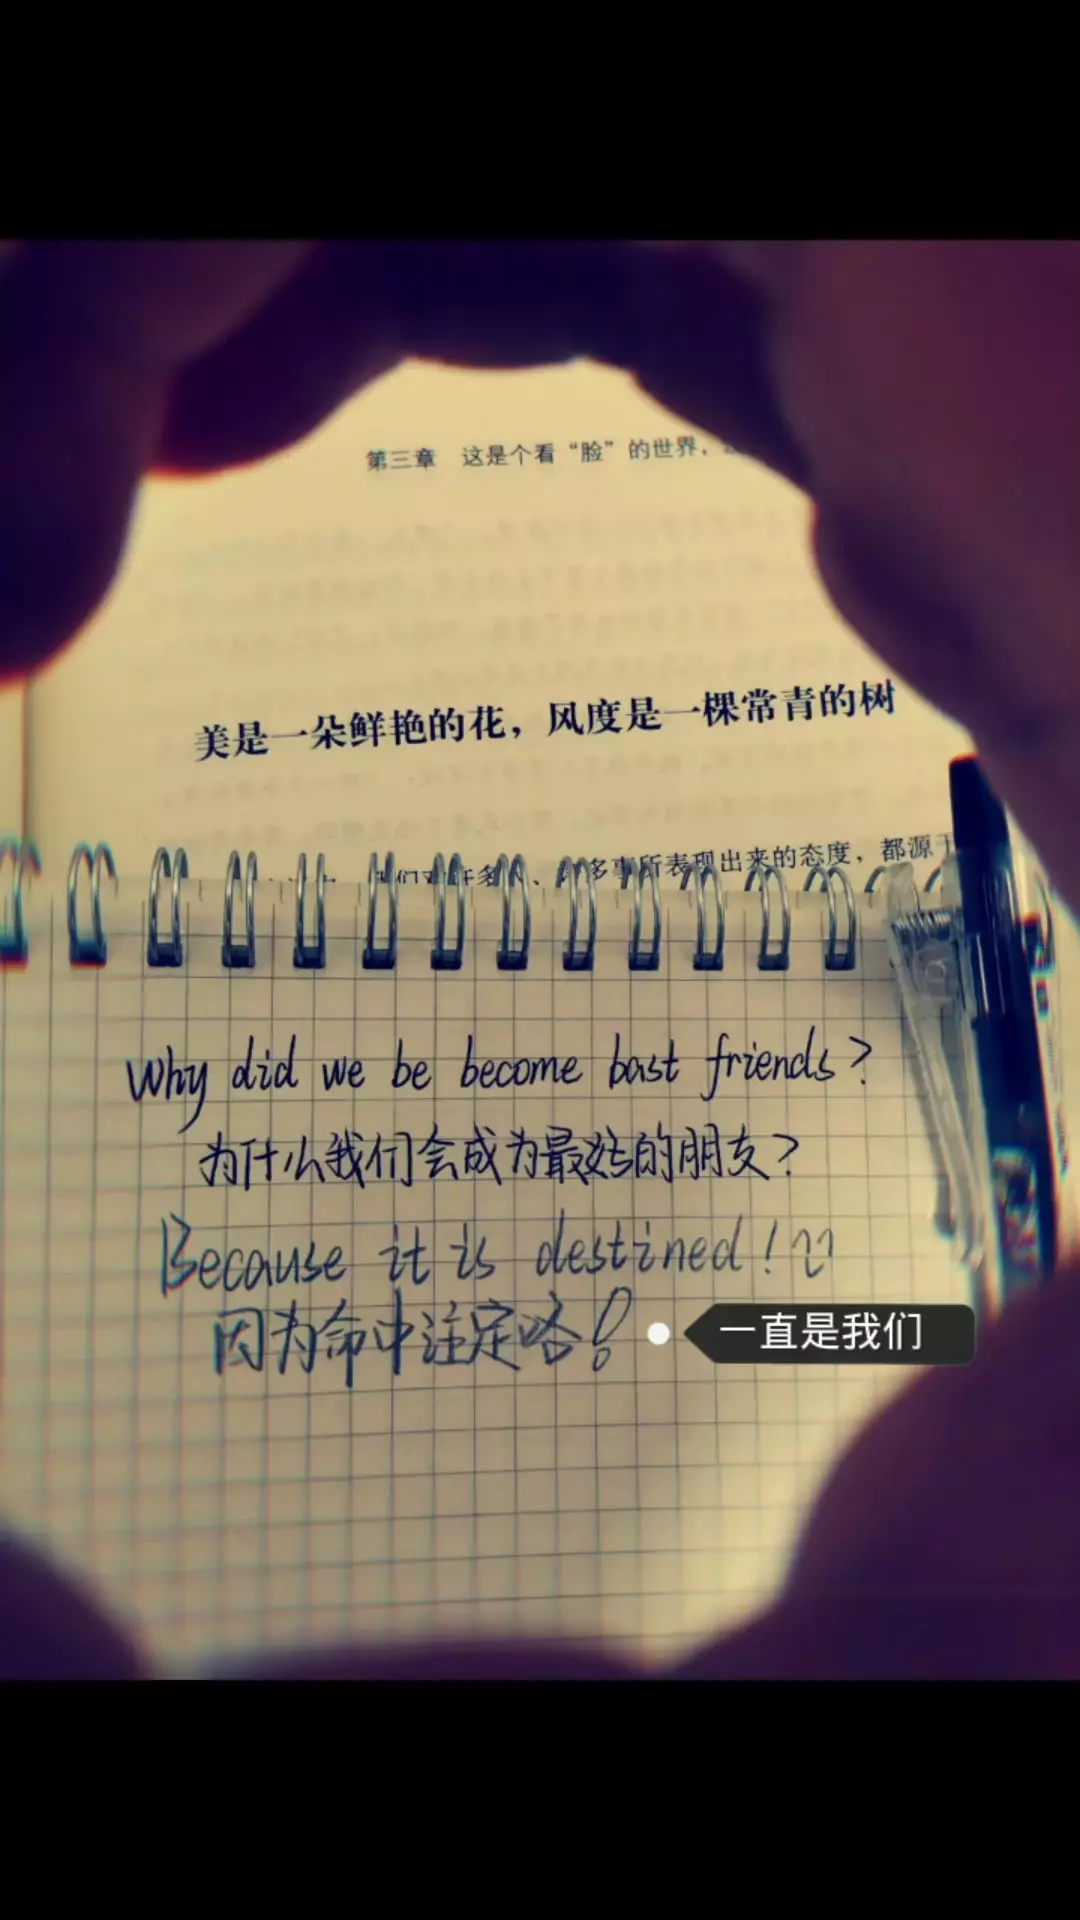 第三章 这是个看“脸”的世界，
美是一朵鲜艳的花，风度是一棵常青的树
们对许多 、 多事所表现出来的态度，都源于
Why did we be become bast friends?
为什么我们会成为最好的朋友？
Because it is destined!
因为命中注定咯！
一直是我们